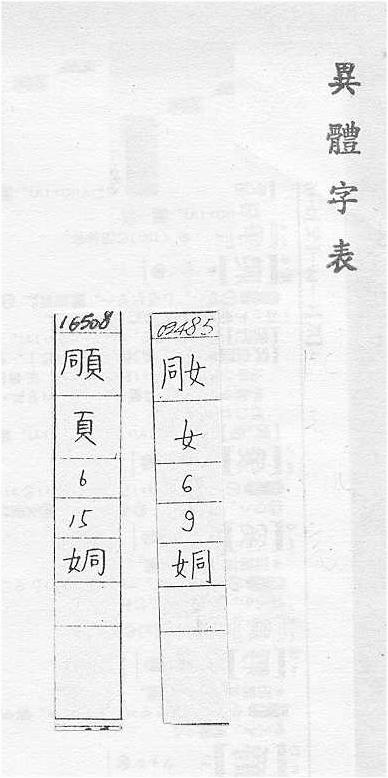 異體字表
03485
同女
女
6
9
姛
16508
同頁
頁
6
15
姛